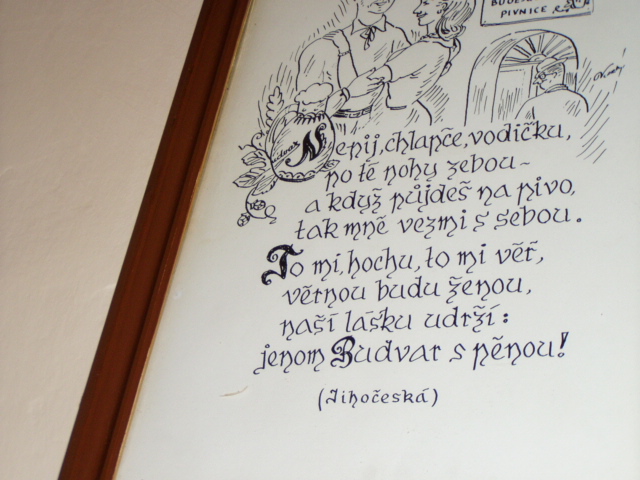 PIVNICE
Nenij, chlapče, vodičku,
po té nohy zebou~
a když půjdeš na pivo,
tak mně vezmi s sebou.
To mi, hochu, to mi věř,
věrnou budu ženou,
naší lásku udrží:
jenom Budvar s pěnou!
(Jihočeská)